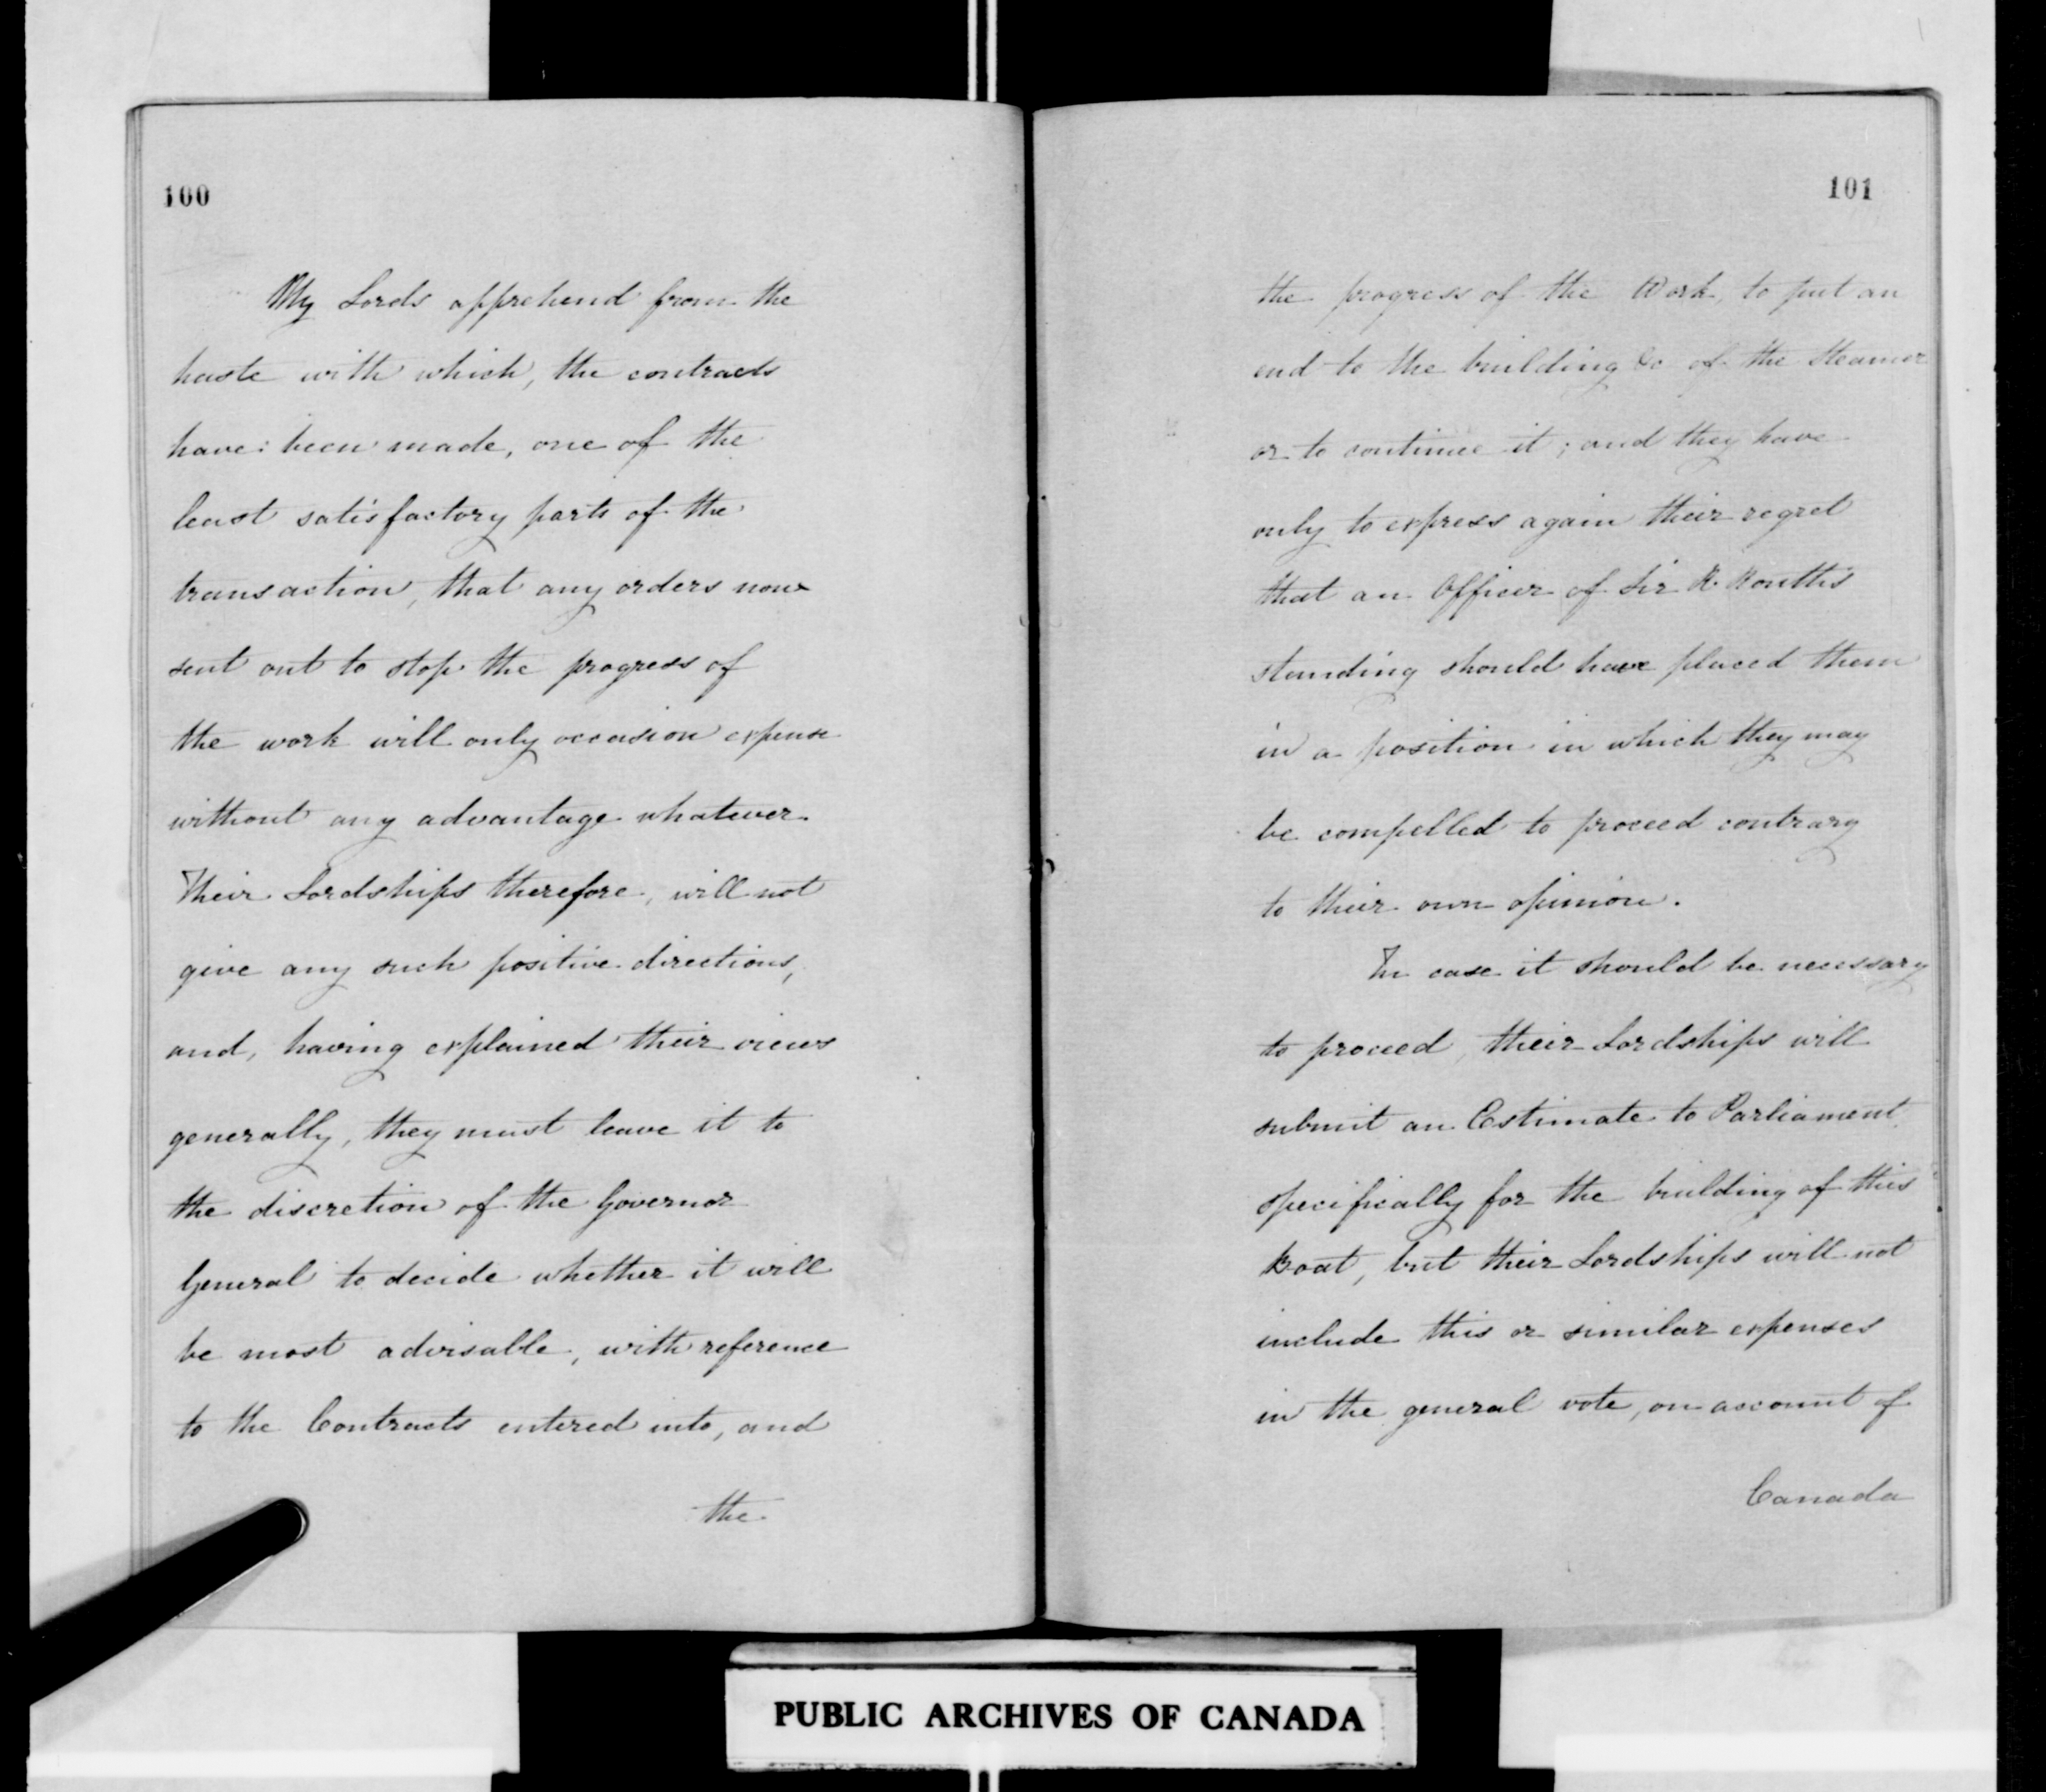 100
My Lords apprehend from the
haste with which, the contracts
have been made, one of the
least satisfactory parts of the
transaction, that any orders now
sent out to stop the progress of
the work will only occasion expense
without any advantage whatever.
Their Lordships therefore, will not
give any such positive directions,
and, having explained their views
generally, they must leave it to
the discretion of the Governor
General to decide whether it will
be most advisable, with reference
to the Contracts entered into, and
the
101
the progress of the Work, to put an
end to the building &c of the Steamer
or to continue it; and they have
only to express again their regret
that an Officer of Sir R. Routh's
standing should have placed them
in a position in which they may
be compelled to proceed contrary
to their own opinion.
In case it should be necessary
to proceed, their Lordships will
submit an Estimate to Parliament
specifically for the building of this
Boat, but their Lordships will not
include this or similar expenses
in the general vote, on account of
Canada
PUBLIC ARCHIVES OF CANADA